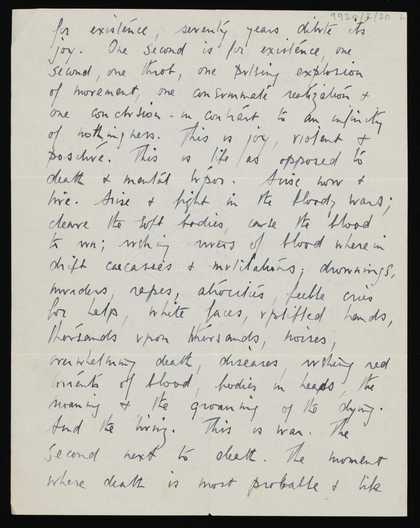 9920/2/20 2
for existence, seventy years dilute its
joy. One second is for existence, one
second, one throb, one pulsing explosion
of movement, one consummate realization &
one conclusion - in contrast to an infinity
of nothingness. This is joy, violent &
positive. This is life as opposed to
death & mental torpor. Arise now &
live. Arise & fight in the bloody wars;
cleave the soft bodies, cause the blood
to run; rushing rivers of blood wherein
drift carcasses & mutilations; drownings,
murders, rapes, atrocities, feeble cries
for help, white faces, uplifted hands,
thousands upon thousands, noises,
overwhelming death, diseases, rushing red
torrents of blood, bodies in heaps, the
moaning & the groaning of the dying.
And the living. This is war. The
second next to death. The moment
where death is most probable & like